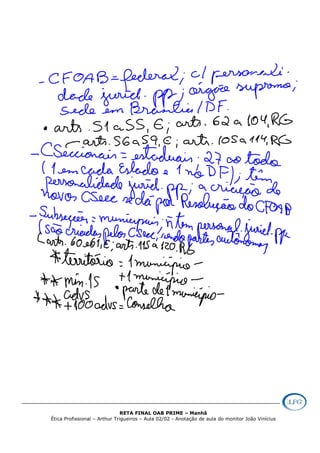 - CFOAB = federal; c/ personali-
dade juríd. pp; órgão supremo;
sede em Brasília/DF.
• arts. 51 a 55, E; arts. 62 a 104, RG
arts. 56 a 59, E; arts. 105 a 114, RG
- CSeccionais = estaduais: 27 ao todo
(1 em cada Estado e 1 no DF); têm
personalidade juríd. pp; a criação de
novos CSecc se dá por Resolução do CFOAB
- Subseções = municipais; ñ tem personal. juríd. pp
(são criadas pelos CSec), sendo partes autônomas
arts. 60 e 61, E; arts. 115 a 120, RG
* território = 1 município -
+1 município -
** mín. 15
advs
• parte de 1 município -
*** +100 advs = Conselho
RETA FINAL OAB PRIME – Manhã
Ética Profissional – Arthur Trigueiros – Aula 02/02 - Anotação de aula do monitor João Vinícius